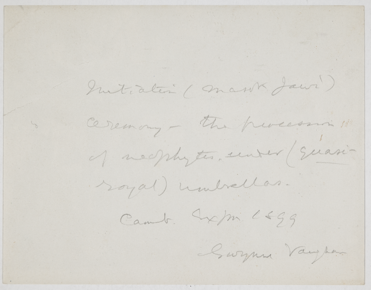 Initiation (masok Jawi)
ceremony – the procession
of neophytes under (quasi-
royal) umbrellas.
Camb. Expn 1899
Gwynne Vaughan